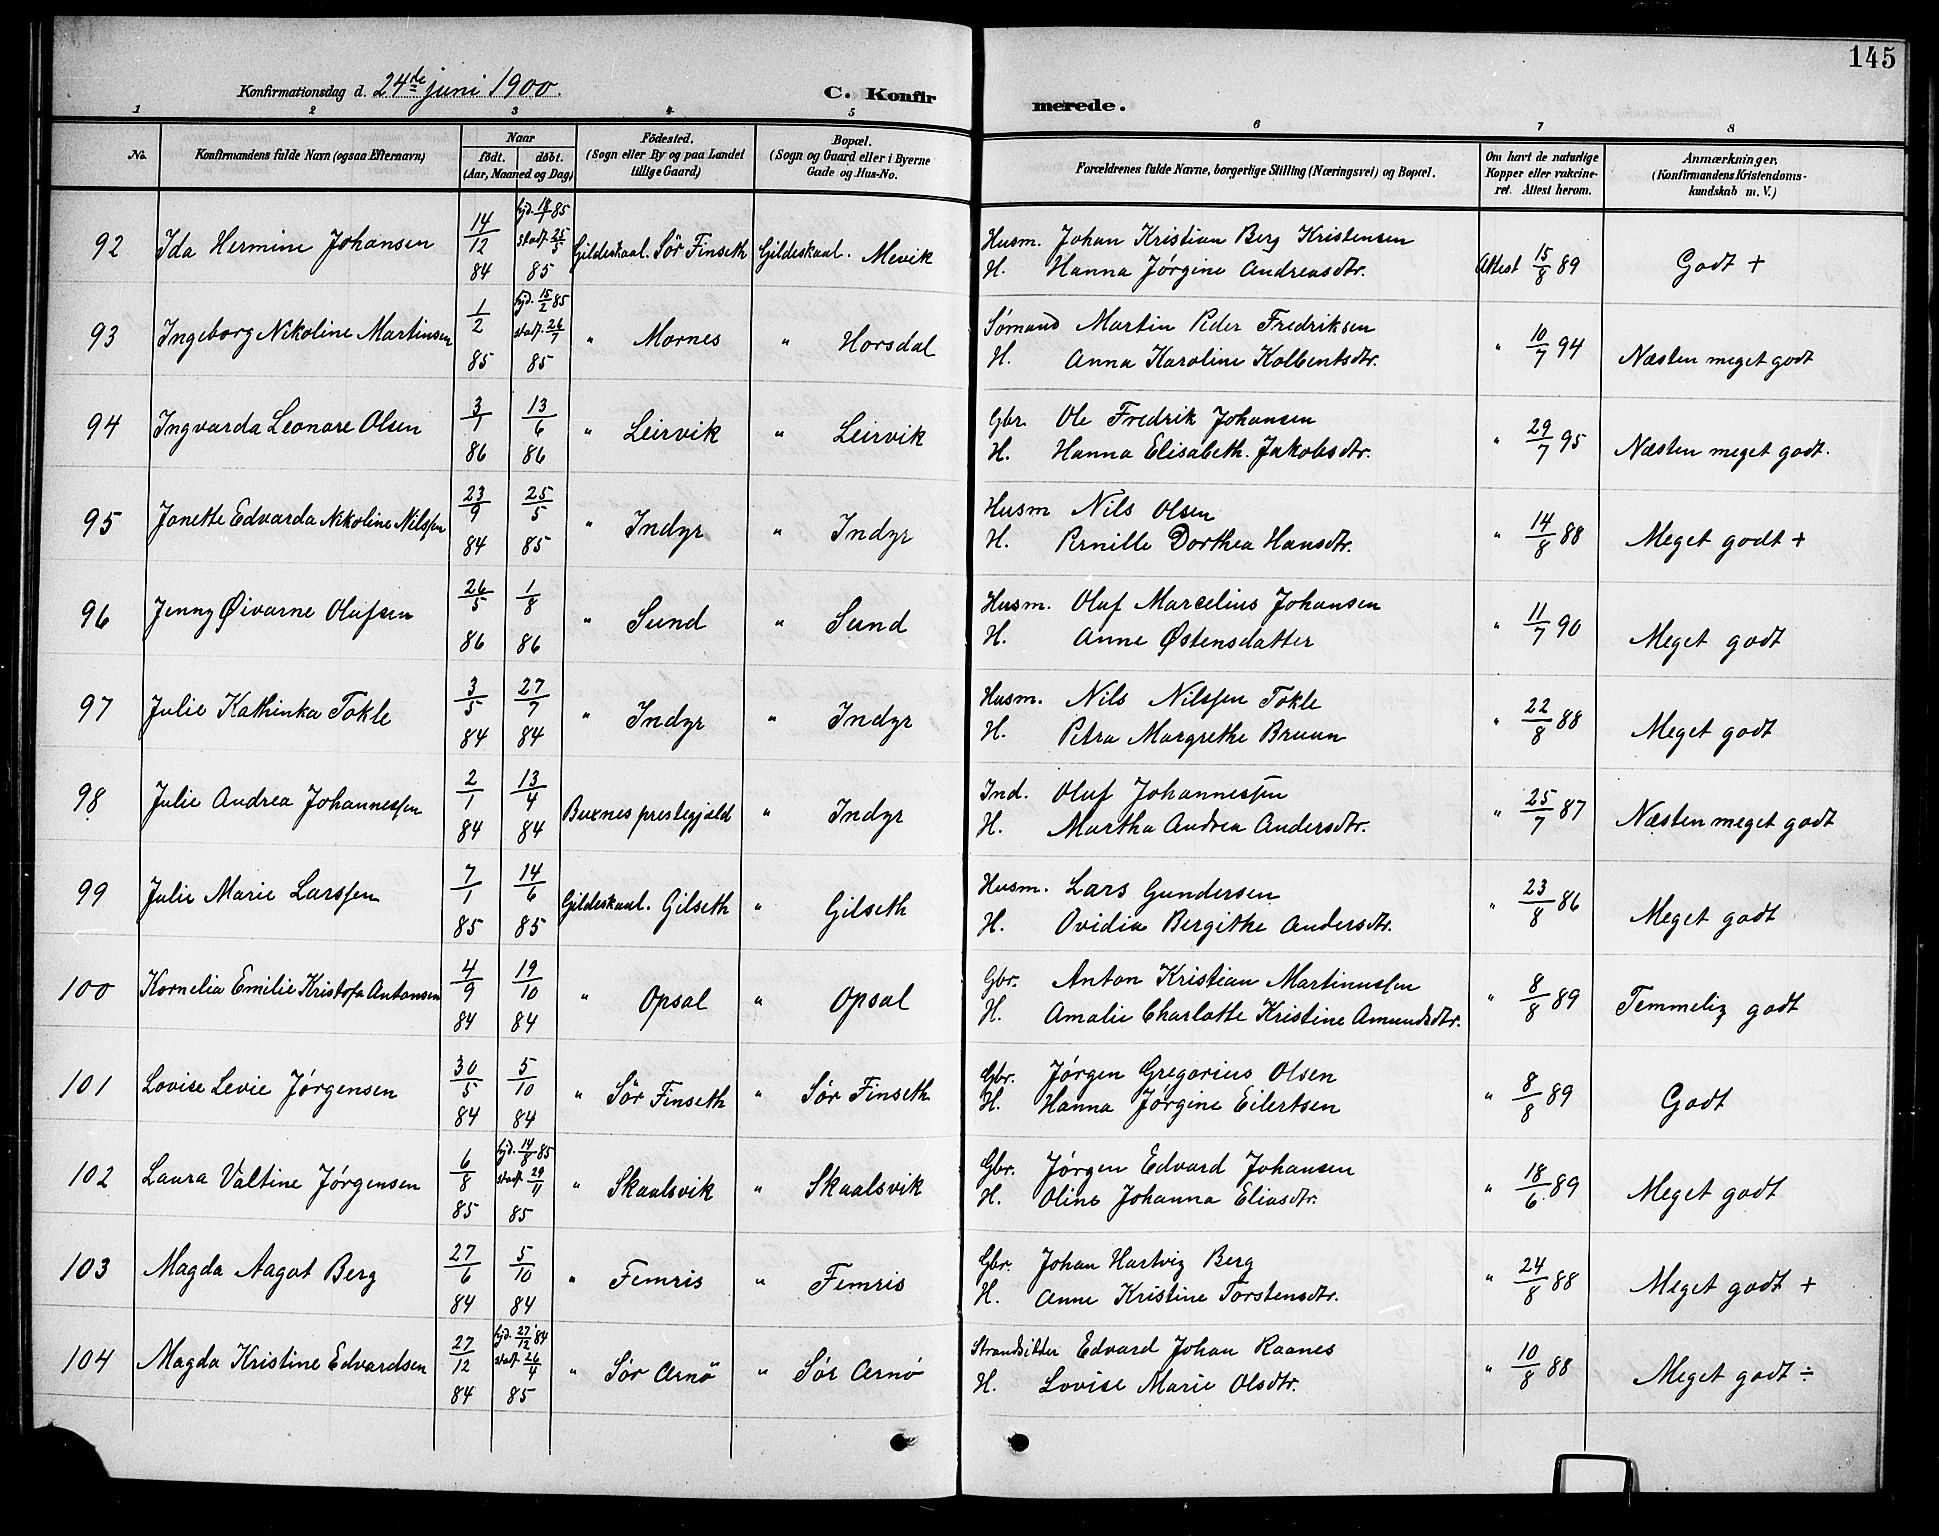 145
Konfirmationsdag d. 24de juni 1900.
C. Konfirmerede.
1 2 3 4 5 6 7 8
No.
Konfirmandens fulde Navn (ogsaa Efternavn)
Naar
födt. döbt.
(Aar, Maaned og Dag)
Födested.
(Sogn eller By og paa Landet
tillige Gaard)
Bopæl.
(Sogn og Gaard eller i Byerne
Gade og Hus-No.
Forældrenes fulde Navne, borgerlige Stilling (Næringsvei) og Bopæl.
Om havt de naturlige
Kopper eller vakcine-
ret. Attest herom.
Anmærkninger.
(Konfirmandens Kristendoms-
kundskab m. V.)
92 Ida Hermine Johansen 14/12 84 hjd. 18/1 85 stadf. 25/5 85 Gildeskaal. Sör Finseth Gildeskaal. Mevik
Husm. Johan Kristian Berg Kristensen
H. Hanna Jørgine Andreasdtr. Attest 15/8 89 Godt +
93 Ingeborg Nikoline Martinsen 1/2 85 hjd. 15/2 85 stadf. 26/7 85 " Mornes " Horsdal
Sømand Martin Peder Fredriksen
H. Anna Karoline Kolbentsdtr. " 10/7 94 Næsten meget godt
94 Ingvarda Leonare Olsen 3/1 86 13/6 86 " Leirvik " Leirvik
Gbr. Ole Fredrik Johansen
H. Hanna Elisabeth. Jakobsdtr. " 29/7 95 Næsten meget godt.
95 Janette Edvarda Nikoline Nilssen 23/9 84 25/5 85 " Indyr " Indyr
Husm Nils Olsen
H. Pernille Dorthea Hansdtr. " 14/8 88 Meget godt +
96 Jenny Øivarne Olufsen 26/5 86 1/8 86 " Sund " Sund
Husm. Oluf Marcelius Johansen
H. Anne Østensdatter " 11/7 90 Meget godt
97 Julie Kathinka Tokle 3/5 84 27/7 84 " Indyr " Indyr
Husm. Nils Nilssen Tokle
H. Petra Margrethe Bruun " 22/8 88 Meget godt
98 Julie Andrea Johannessen 2/1 84 13/4 84 Buxnes prestegjæld " Indyr
Ind. Oluf Johannessen
H. Martha Andrea Andersdtr. " 25/7 87 Næsten meget godt
99 Julie Marie Larssen 7/1 85 14/6 85 Gildeskaal. Gilseth " Gilseth
Husm. Lars Gundersen
H. Ovidia Bergithe Andersdtr. " 23/8 86 Meget godt
100 Kornelia Emilie Kristofa Antonsen 4/9 84 19/10 84 " Opsal " Opsal
Gbr. Anton Kristian Martinussen
H. Amalie Charlotte Kristine Amundsdtr. " 8/8 89 Temmelig godt
101 Lovise Levie Jørgensen 30/5 84 5/10 84 " Sör Finseth " Sør Finseth
Gbr. Jørgen Gregorius Olsen
H. Hanna Jørgine Eilertsen " 8/8 89 Godt
102 Laura Valtine Jørgensen 6/8 85 hjd. 14/8 85 stadf. 29/11 85 " Skaalsvik " Skaalsvik
Gbr. Jørgen Edvard Johansen
H. Oline Johanna Eliasdtr. " 18/6 89 Meget godt
103 Magda Aagot Berg 27/6 84 5/10 84 " Femris " Femris
Gbr. Johan Hartvig Berg
H. Anne Kristine Torstensdtr. " 24/8 88 Meget godt +
104 Magda Kristine Edvardsen 27/12 84 hjd. 27/12 84 stadf. 26/4 85 " Sør Arnö " Sør Arnø
Strandsidder Edvard Johan Raanes
H. Lovise Marie Olsdtr. " 10/8 88 Meget godt ÷